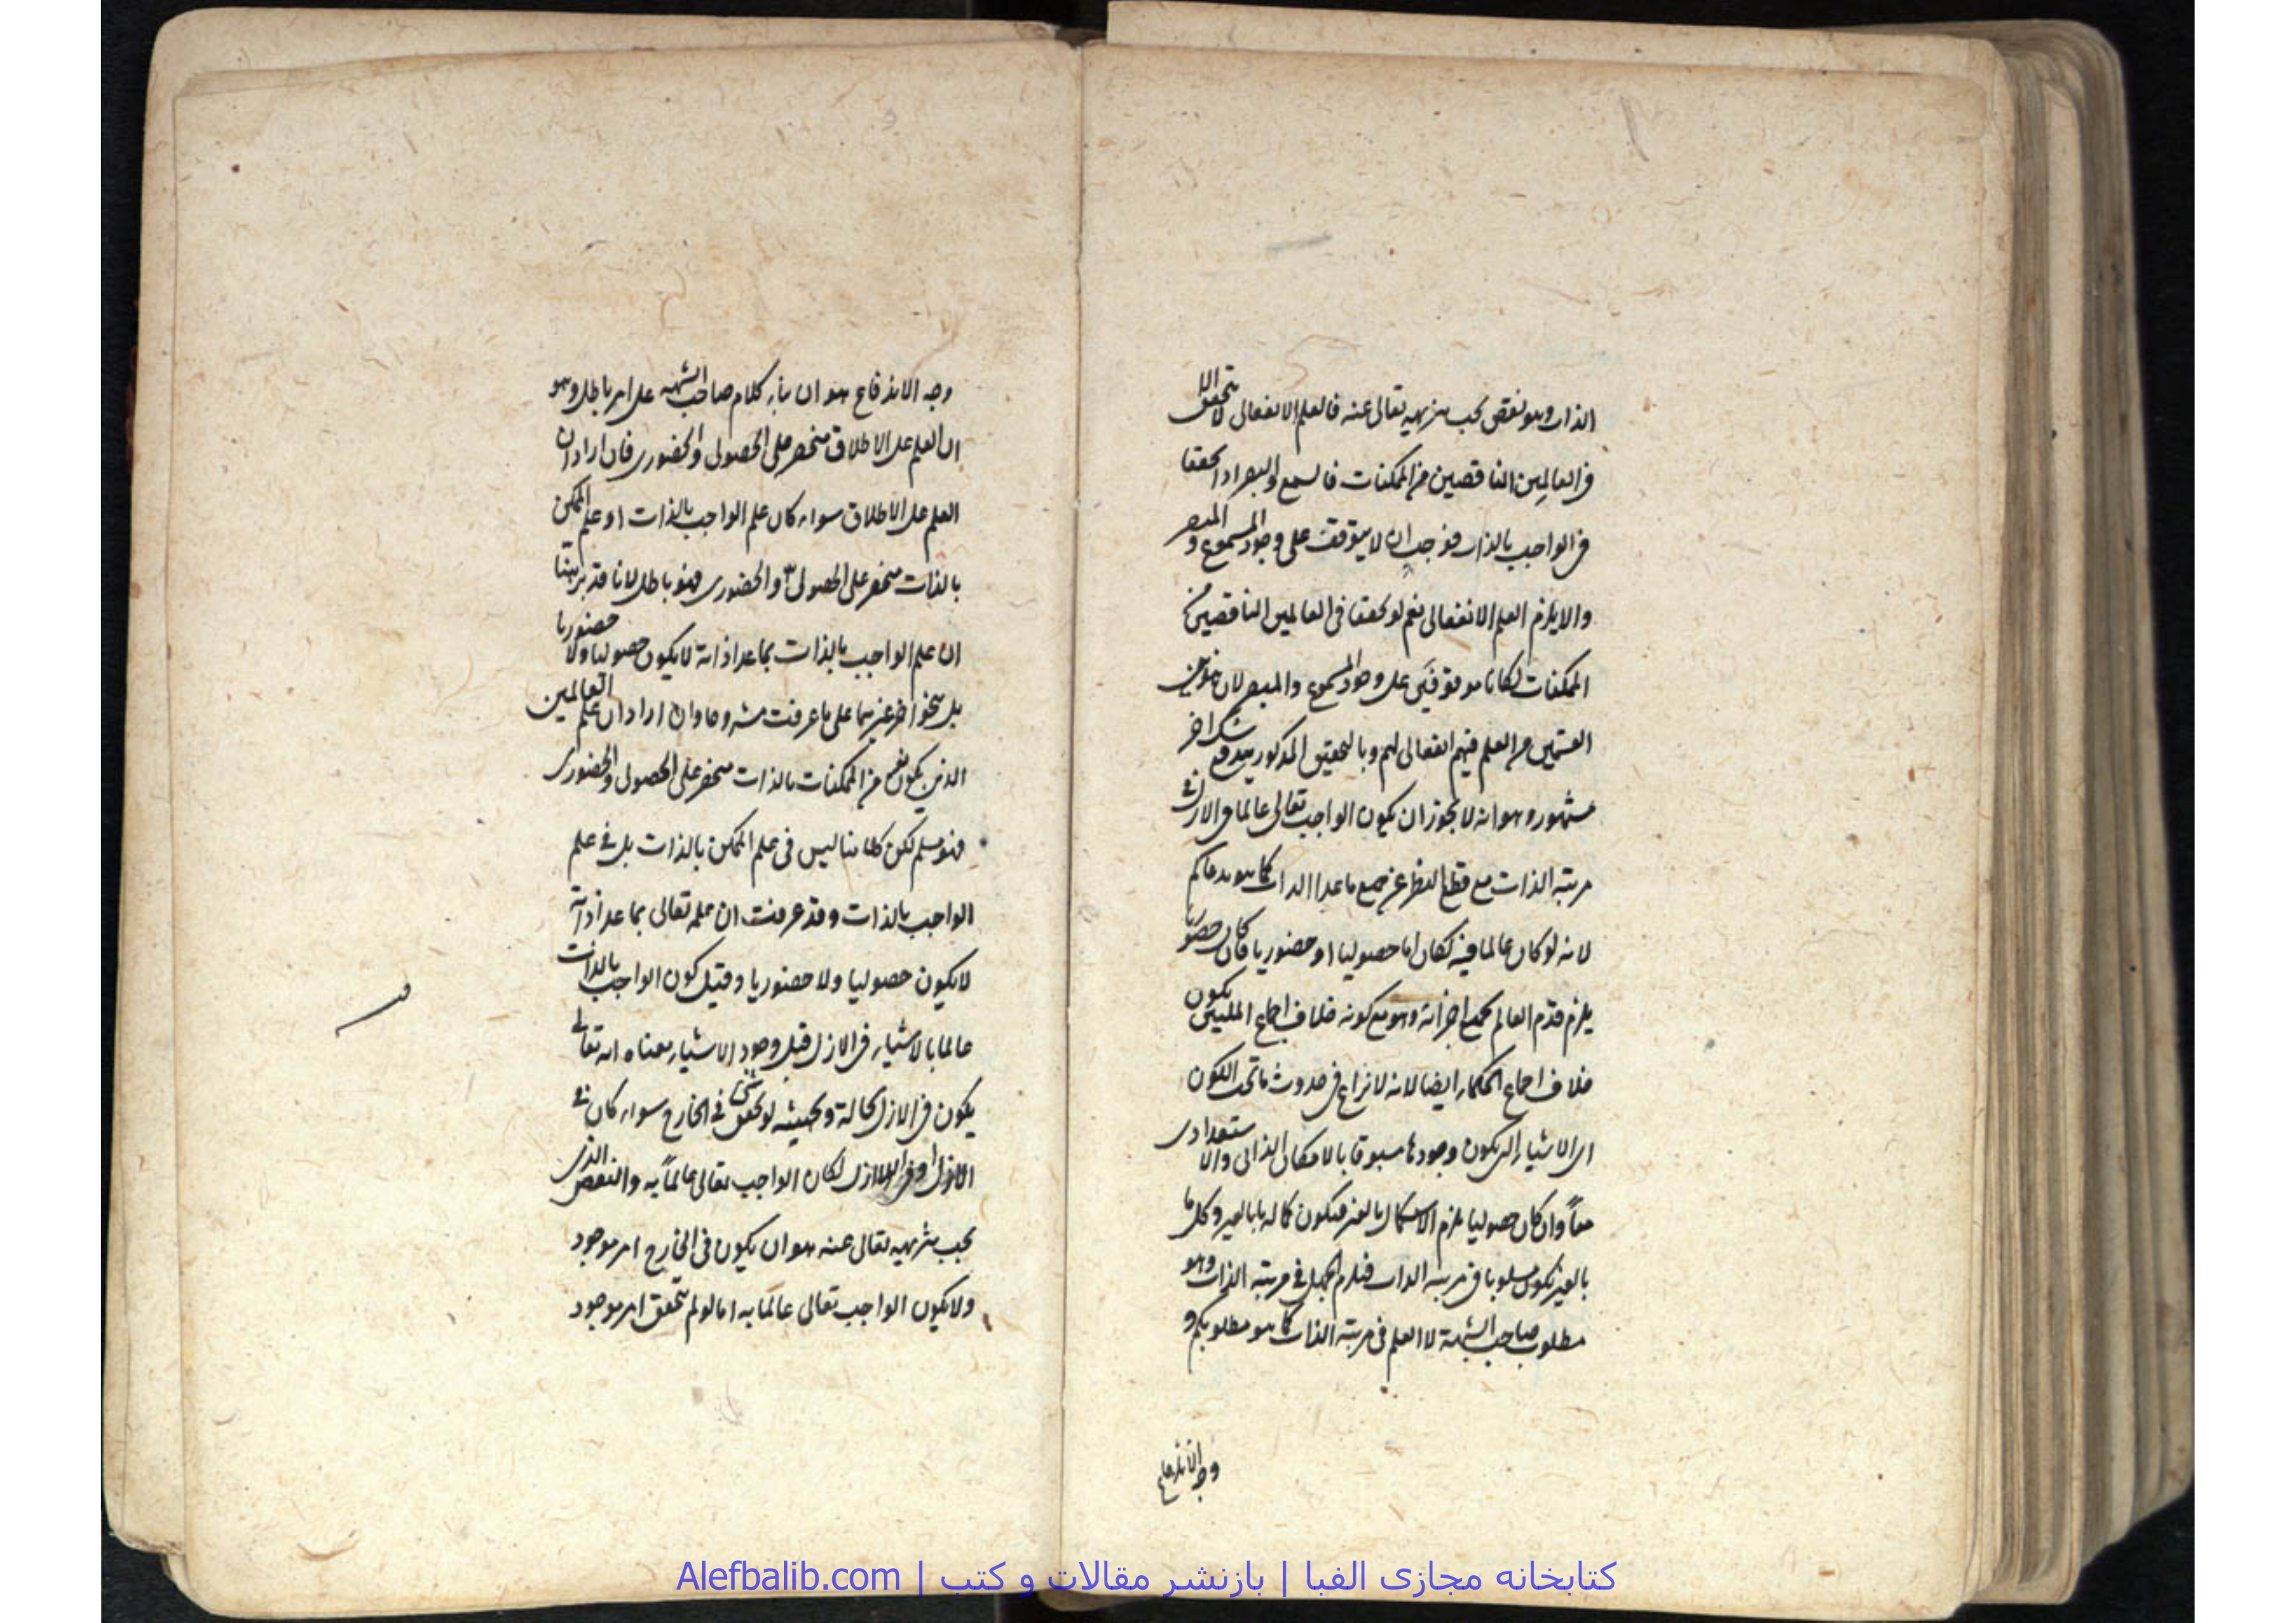 الذات وهو نقص يجب تنزيهه تعالى عنه فالعلم الانفعالى لا يتحقق الا
فى العالمين الناقصين من الممكنات فالسمع والبصر اذا تحققا
فى الواجب بالذات فوجب ان لا يتوقف على وجود المسموع والمبصر
والا يلزم العلم الانفعالى نعم لو تحققا فى العالمين الناقصين من
الممكنات لكانا موقوفين على وجود المسموع والمبصر لان هذين
القسمين من العلم فيهم انفعالى لهم وبالتحقيق المذكور يندفع شك اخر
مشهور وهو انه لا يجوز ان يكون الواجب تعالى عالما فى الازل فى
مرتبة الذات مع قطع النظر عن جميع ماعدا الذات كما هو مدعاكم
لانه لو كان عالما فيه لكان اما حصوليا او حضوريا فان كان حضوريا
يلزم قدم العالم بجميع اجزائه وهو مع كونه خلاف اجماع المليين يكون
خلاف اجماع الحكماء ايضا لانه لا نزاع فى حدوث ما تحت الكون
اى الاشياء التى يكون وجودها مسبوقا بالامكان الذاتى والاستعدادى
معاً وان كان حصوليا يلزم الاستكمال بالغير فيكون كماله بالغير وكل ما
بالغير يكون مسلوبا فى مرتبة الذات فيلزم الجهل فى مرتبة الذات وهو
مطلوب صاحب الشبهة لا العلم فى مرتبة الذات كما هو مطلوبكم و
وجه الاندفاع
وجه الاندفاع هو ان بناء كلام صاحب الشبهة على امر باطل وهو
ان العلم على الاطلاق منحصر على الحصولى والحضورى فان اراد ان
العلم على الاطلاق سواء كان علم الواجب بالذات او علم الممكن
بالذات منحصر على الحصولى والحضورى فهو باطل لانا قد بيّنا
ان علم الواجب بالذات بما عدا ذاته لا يكون حصوليا ولا حضوريا
بل بنحو اخر غيرهما على ما عرفت مشروحا وان اراد ان علم العالمين
الذين يكون من الممكنات بالذات منحصر على الحصولى والحضورى
فهو مسلم لكن كلامنا ليس فى علم الممكن بالذات بل فى علم
الواجب بالذات وقد عرفت ان علمه تعالى بما عدا ذاته
لا يكون حصوليا ولا حضوريا وقيل كون الواجب بالذات
عالما بالاشياء فى الازل قبل وجود الاشياء معناه انه تعالى
يكون فى الازل بحالة وبحيثية لو تحقق شىء فى الخارج سواء كان فى
الازل او فى اللاازل لكان الواجب تعالى عالماً به والنقص الذى
يجب تنزيهه تعالى عنه هو ان يكون فى الخارج امر موجود
ولا يكون الواجب تعالى عالما به اما لو لم يتحقق امر موجود
کتابخانه مجازی الفبا | بازنشر مقالات و کتب | Alefbalib.com